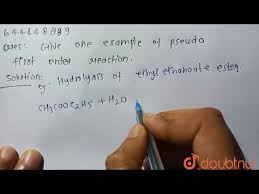 Ques: Give one example of pseudo
first order reaction.
Solution:
eg. Hydrolysis of ethyl ethanoate ester.
CH3COOC2H5 + H2O
doubtnut